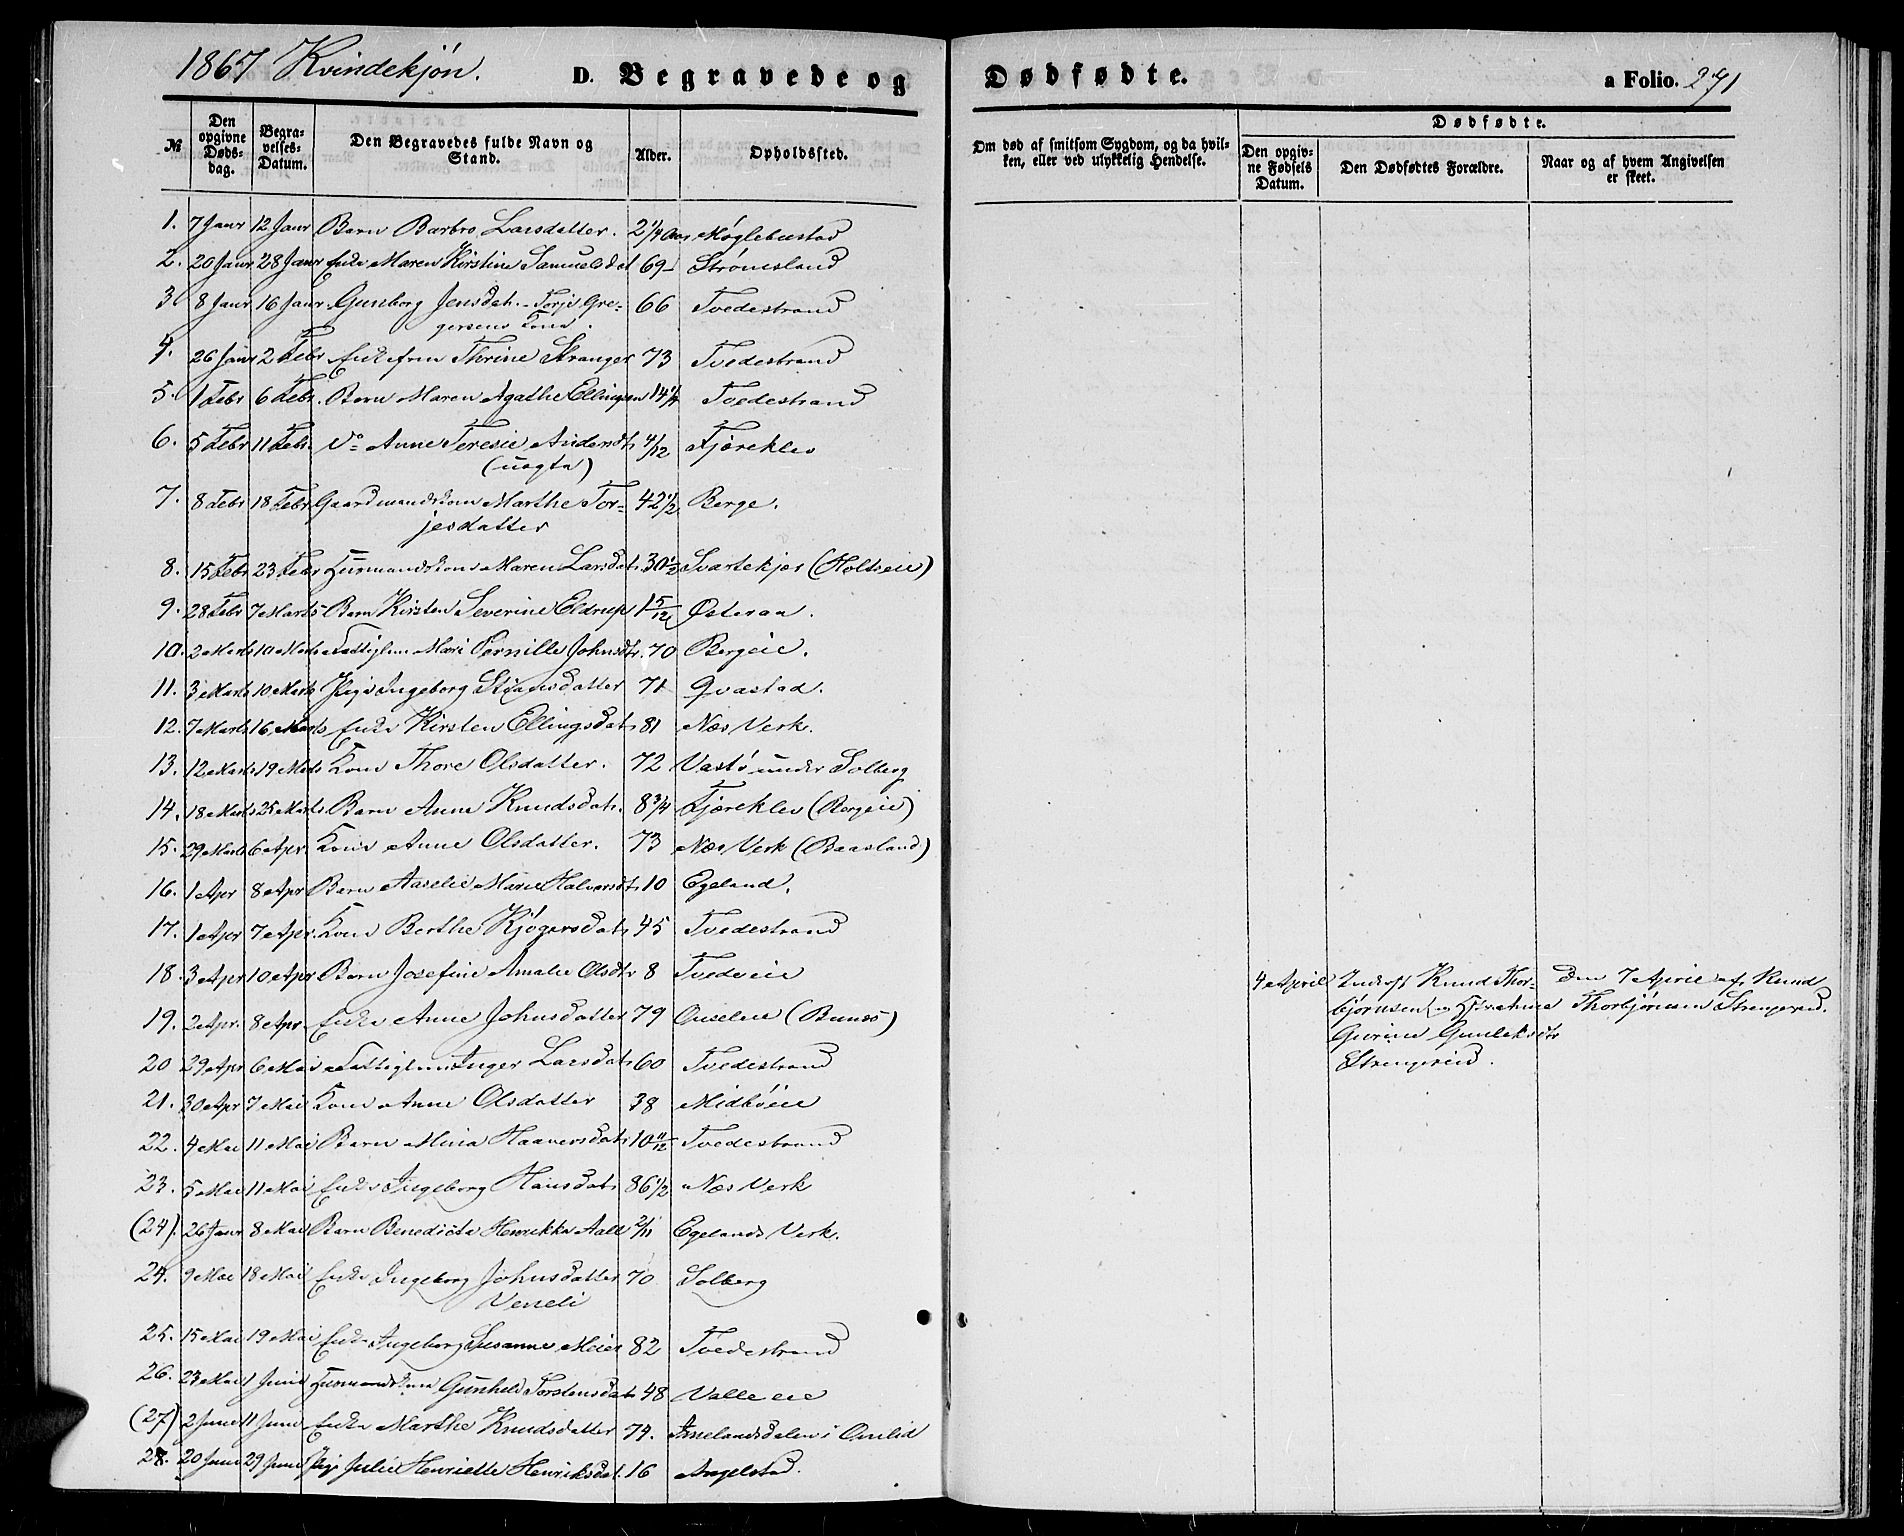 1867 Kvindekjøn.
D. Begravede og
Dødfødte.
a Folio. 271
№
Den opgivne Døds-dag.
Begra-velses-Datum.
Den Begravedes fulde Navn og Stand.
Alder.
Opholdssted.
Om død af smitsom Sygdom, og da hvil-ken, eller ved ulykkelig Hendelse.
Dødfødte.
Den opgiv-ne Fødsels Datum.
Den Dødfødtes Forældre.
Naar og af hvem Angivelsen er skeet.
1. 7 Janr 12 Janr Barn Barbro Larsdatter. 2 1/4 Aar Møglebustad
2. 20 Janr 28 Janr Enke Maren Kirstine Samuelsdat 69 - Strømsland
3 8 Janr 16 Janr Gunborg Jensdat. - Torje Gre-
gersens Kone. 66 Tvedestrand
4. 26 Janr 2 Febr Enkefru Thrine Stranger 73 Tvedestrand
5. 1 Febr 6 Febr. Barn Maren Agathe Ellingsen 14 1/4 Tvedestrand
6. 5 Febr 11 Febr. Do Anne Teresie Andersdt. 4/12 Fjæreklev
(uægte)
7. 8 Febr 18 Febr Gaardmandskone Marthe Tor-
jesdatter 42 1/2 Berge.
8. 15 Febr 23 Febr Husmandskone Maren Larsdat. 30 1/2 Svartekjær (Holteeie)
9. 28 Febr 7 Marts Barn Kirsten Severine Eldrup 1 5/12 Østeraa.
10. 2 Marts 10 Marts Fattiglem Mari Pernille Johnsdtr. 70 Bergeie.
11. 3 Marts 10 Marts Pige Ingeborg Stiansdatter 71 Qvastad.
12. 7 Marts 16 Marts Enke Kirsten Ellingsdat. 81 Næs Verk.
13. 12 Marts 19 Marts Kone Thore Olsdatter. 72 Vastø under Solberg
14. 18 Marts 25 Marts. Barn Anne Knudsdat. 8 3/4 Fjæreklev (Bergeie)
15. 29 Marts 6 Apr. Kone Anne Olsdatter. 73 Næs Verk (Baasland)
16. 1 Apr 8 Apr Barn Aaselie Marie Halvorsdt. 10 Egeland.
17. 1 Apr 7 Apr. Kone Berthe Kjøgersdat. 45 Tvedestrand
18. 3 Apr 10 Apr Barn Josefine Amalie Olsdtr 8 Tvedeeie
19. 2 Apr. 8 Apr. Enke Anne Johnsdatter 79 Ouseleie
20 29 Apr 6 Mai Fattiglem Inger Larsdat. 60 Tvedestrand
21. 30 Apr 7 Mai Kone Anne Olsdatter 38 Midbøeie
22. 4 Mai 11 Mai Barn Mina Haaversdat. 10 11/12 Tvedestrand
23. 5 Mai 11 Mai Enke Ingeborg Hansdat. 86 1/2 Næs Verk
(24). 26 Janr 8 Mai Barn Benedicta Henrikka Aall 2/11 Egelands Verk.
24. 9 Mai 18 Mai Enke Ingeborg Johnsdatter 70 Solberg
Veneli
25. 15 Mai 19 Mai Enke Ingeborg Susanne Meier 82 Tvedestrand
26. 23 Mai 1 Juni Husmandskone Gunhild Torstensdat. 48 Valleeie
(27) 2 Juni 11 Juni Enke Marthe Knudsdatter 74. i Omlid
28. 20 Juni 29 Juni Pige Julie Henriette Henriksdat. 16 Angelstad.
4 April Knud Thor-
bjørnsen og Hustrue
Gurine Gunleksdtr
Strengereid.
Den 7 April af Knud
Thorbjørnsen Strengereid.